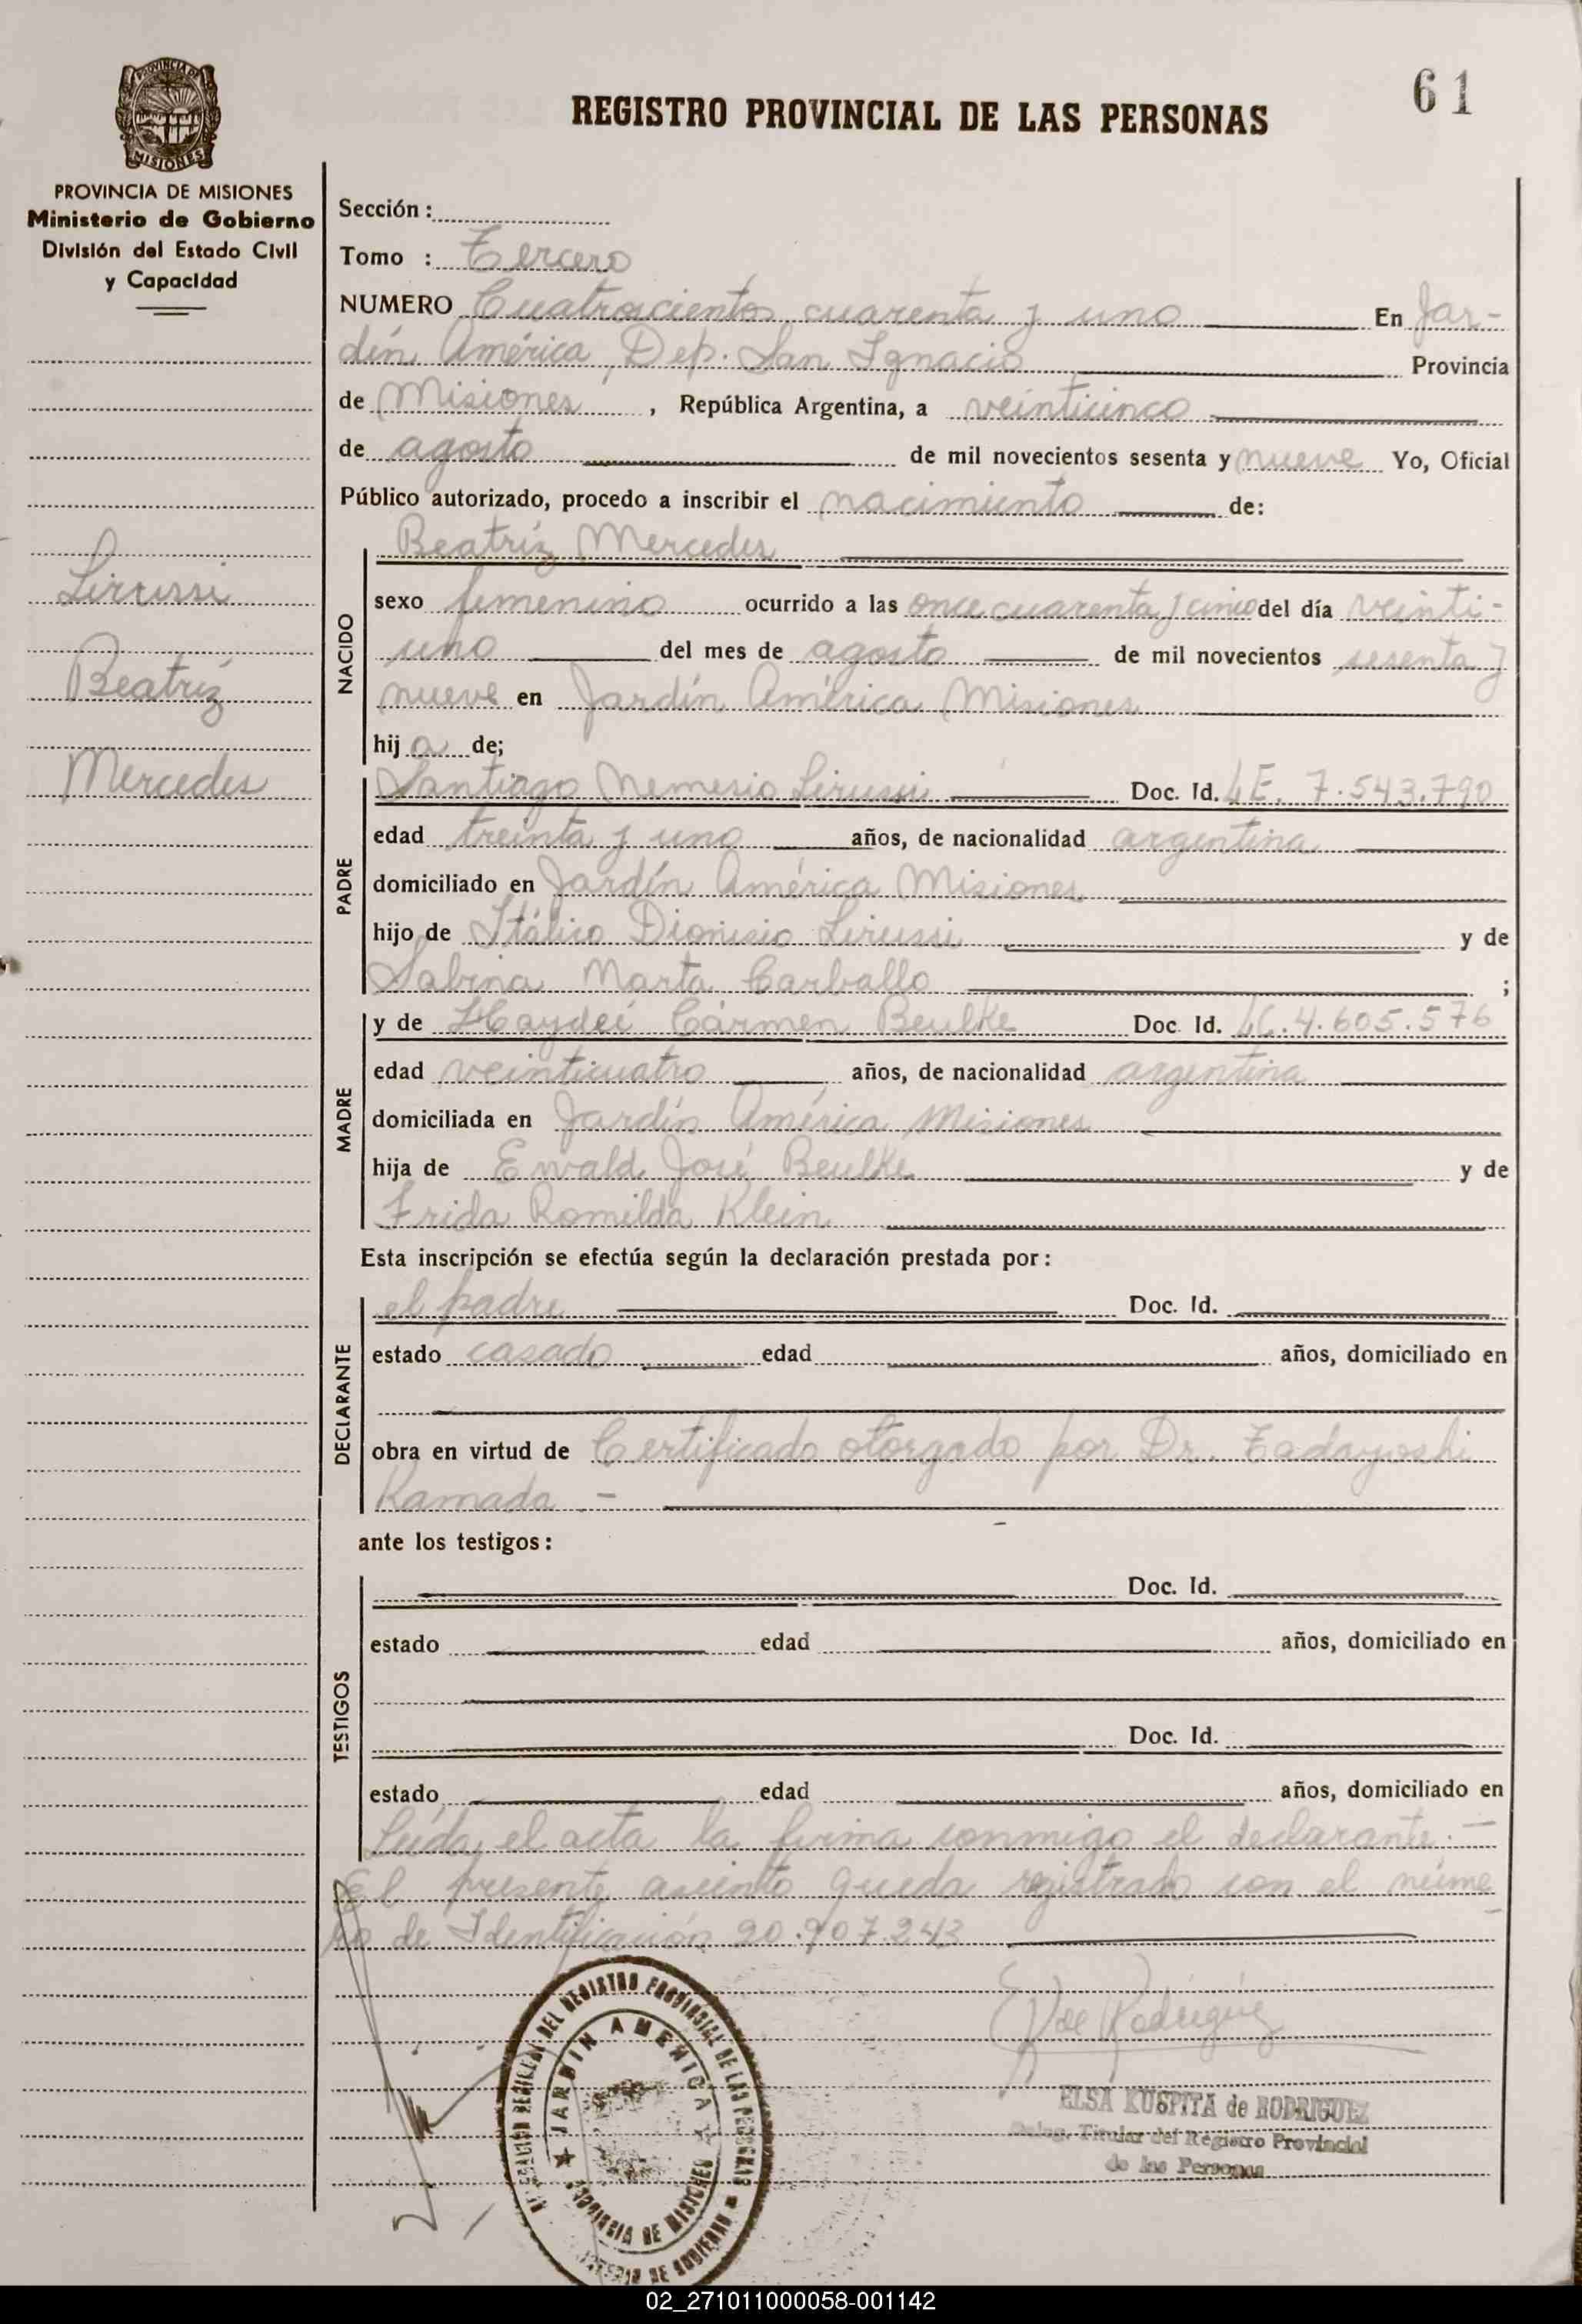 61
PROVINCIA DE
MISIONES
REGISTRO PROVINCIAL DE LAS PERSONAS
PROVINCIA DE MISIONES
Ministerio de Gobierno
División del Estado Civil
y Capacidad
Lirussi
Beatríz
Mercedes
Sección :
Tomo : Tercero
NUMERO Cuatrocientos cuarenta y uno En Jar-
dín América, Dep. San Ignacio Provincia
de Misiones , República Argentina, a veinticinco
de agosto de mil novecientos sesenta y nueve Yo, Oficial
Público autorizado, procedo a inscribir el nacimiento de:
NACIDO
Beatríz Mercedes
sexo femenino ocurrido a las once cuarenta y cinco del día veinti-
uno del mes de agosto de mil novecientos sesenta y
nueve en Jardín América Misiones
hij a de;
PADRE
Santiago Nemesio Lirussi Doc. Id. LE. 7.543.790
edad treinta y uno años, de nacionalidad argentina
domiciliado en Jardín América Misiones
hijo de Itálico Dionisio Lirussi y de
Sabina Marta Carballo ;
MADRE
y de Haydeé Cármen Beulke Doc. Id. LC. 4.605.576
edad veinticuatro años, de nacionalidad argentina
domiciliada en Jardín América Misiones
hija de Ewald José Beulke y de
Frida Romilda Klein
Esta inscripción se efectúa según la declaración prestada por :
DECLARANTE
el padre Doc. Id.
estado casado edad años, domiciliado en
obra en virtud de Certificado otorgado por Dr. Tadayoshi
Kamada . -
ante los testigos :
TESTIGOS
Doc. Id.
estado edad años, domiciliado en
Doc. Id.
estado edad años, domiciliado en
Leída el acta la firma conmigo el declarante. -
El presente asiento queda registrado con el núme
ro de Identificación 20.907.243
E K de Rodriguez
ELSA KUSPITA de RODRIGUEZ
Deleg. Titular del Registro Provincial
de las Personas
DEL REGISTRO PROVINCIAL DE LAS PERSONAS
JARDIN AMERICA
PROVINCIA DE MISIONES
MINISTERIO DE GOBIERNO
02_271011000058-001142